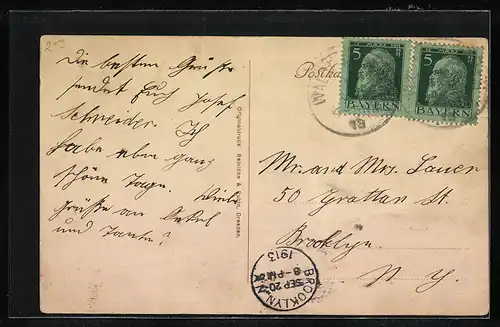 Die besten Grüsse
sendet Euch Josef
Schneider. Ich
habe eben ganz
schöne Tage. Viele
Grüsse an Onkel
und Tante!
Originaldruck Reinicke & Rubin, Dresden.
Postka
5 5
BAYERN
5 5
BAYERN
13
Mr. and Mrs. Lauer
50 Grattan St.
Brooklyn.
N. Y.
BROOKLYN
SEP 20
8-PM
1913